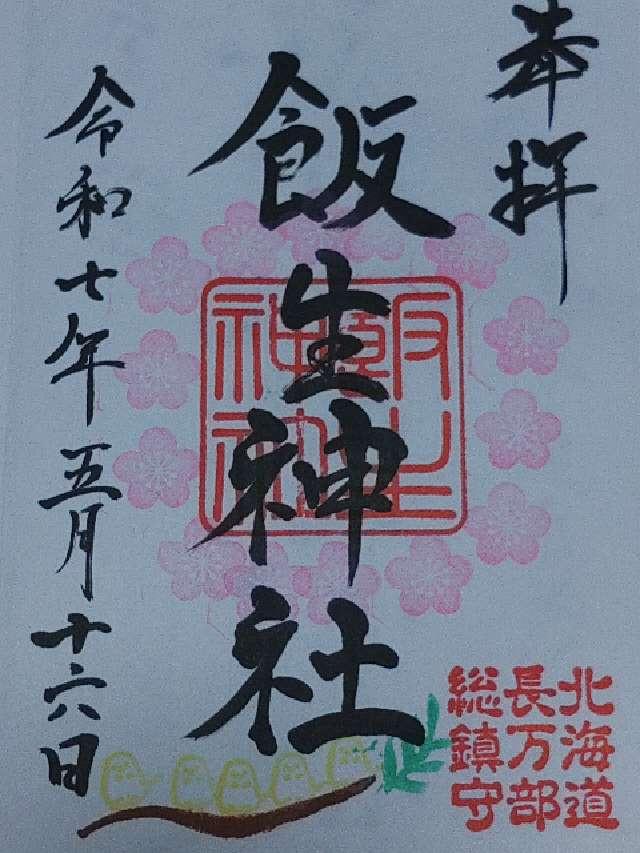 奉拝
飯生神社
飯生
神社
令和七年五月十六日
北海道
長万部
総鎮守